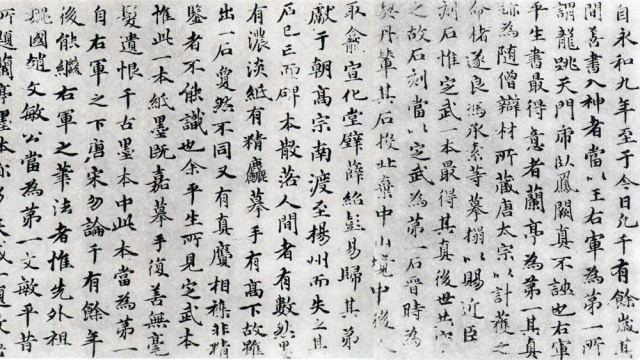 自永和九年至于今日凡千有餘歲其
間善書入神者當以王右軍為第一所
謂龍跳天門虎臥鳳闕真不誣也右軍
平生書最得意者蘭亭為第一其真
跡為隨僧辯材所藏唐太宗以計獲之
命楮遂良馮承素等摹搨以賜近臣
刻石惟定武一本最得其真後世共
之故石刻當以定武為第一石晉時為
契丹輦其石投北棄中山境中後
取龕宣化堂壁薛紹彭易歸其第
獻于朝高宗南渡至楊州而失之其
石已亡而碑本散落人間者有數然
有濃淡紙有精麤摹手有高下故雖
出一石夐然不同又有真贋相雜非精
鑒者不能識也余平生所見定武本
惟此一本紙墨既嘉摹手復善無毫
髮遺恨千古墨本中此本當為第一
自右軍之下唐宋勿論千有餘年
後能繼右軍之筆法者惟先外祖
魏國趙文敏公當為第一文敏平昔
所題蘭亭墨本亦多